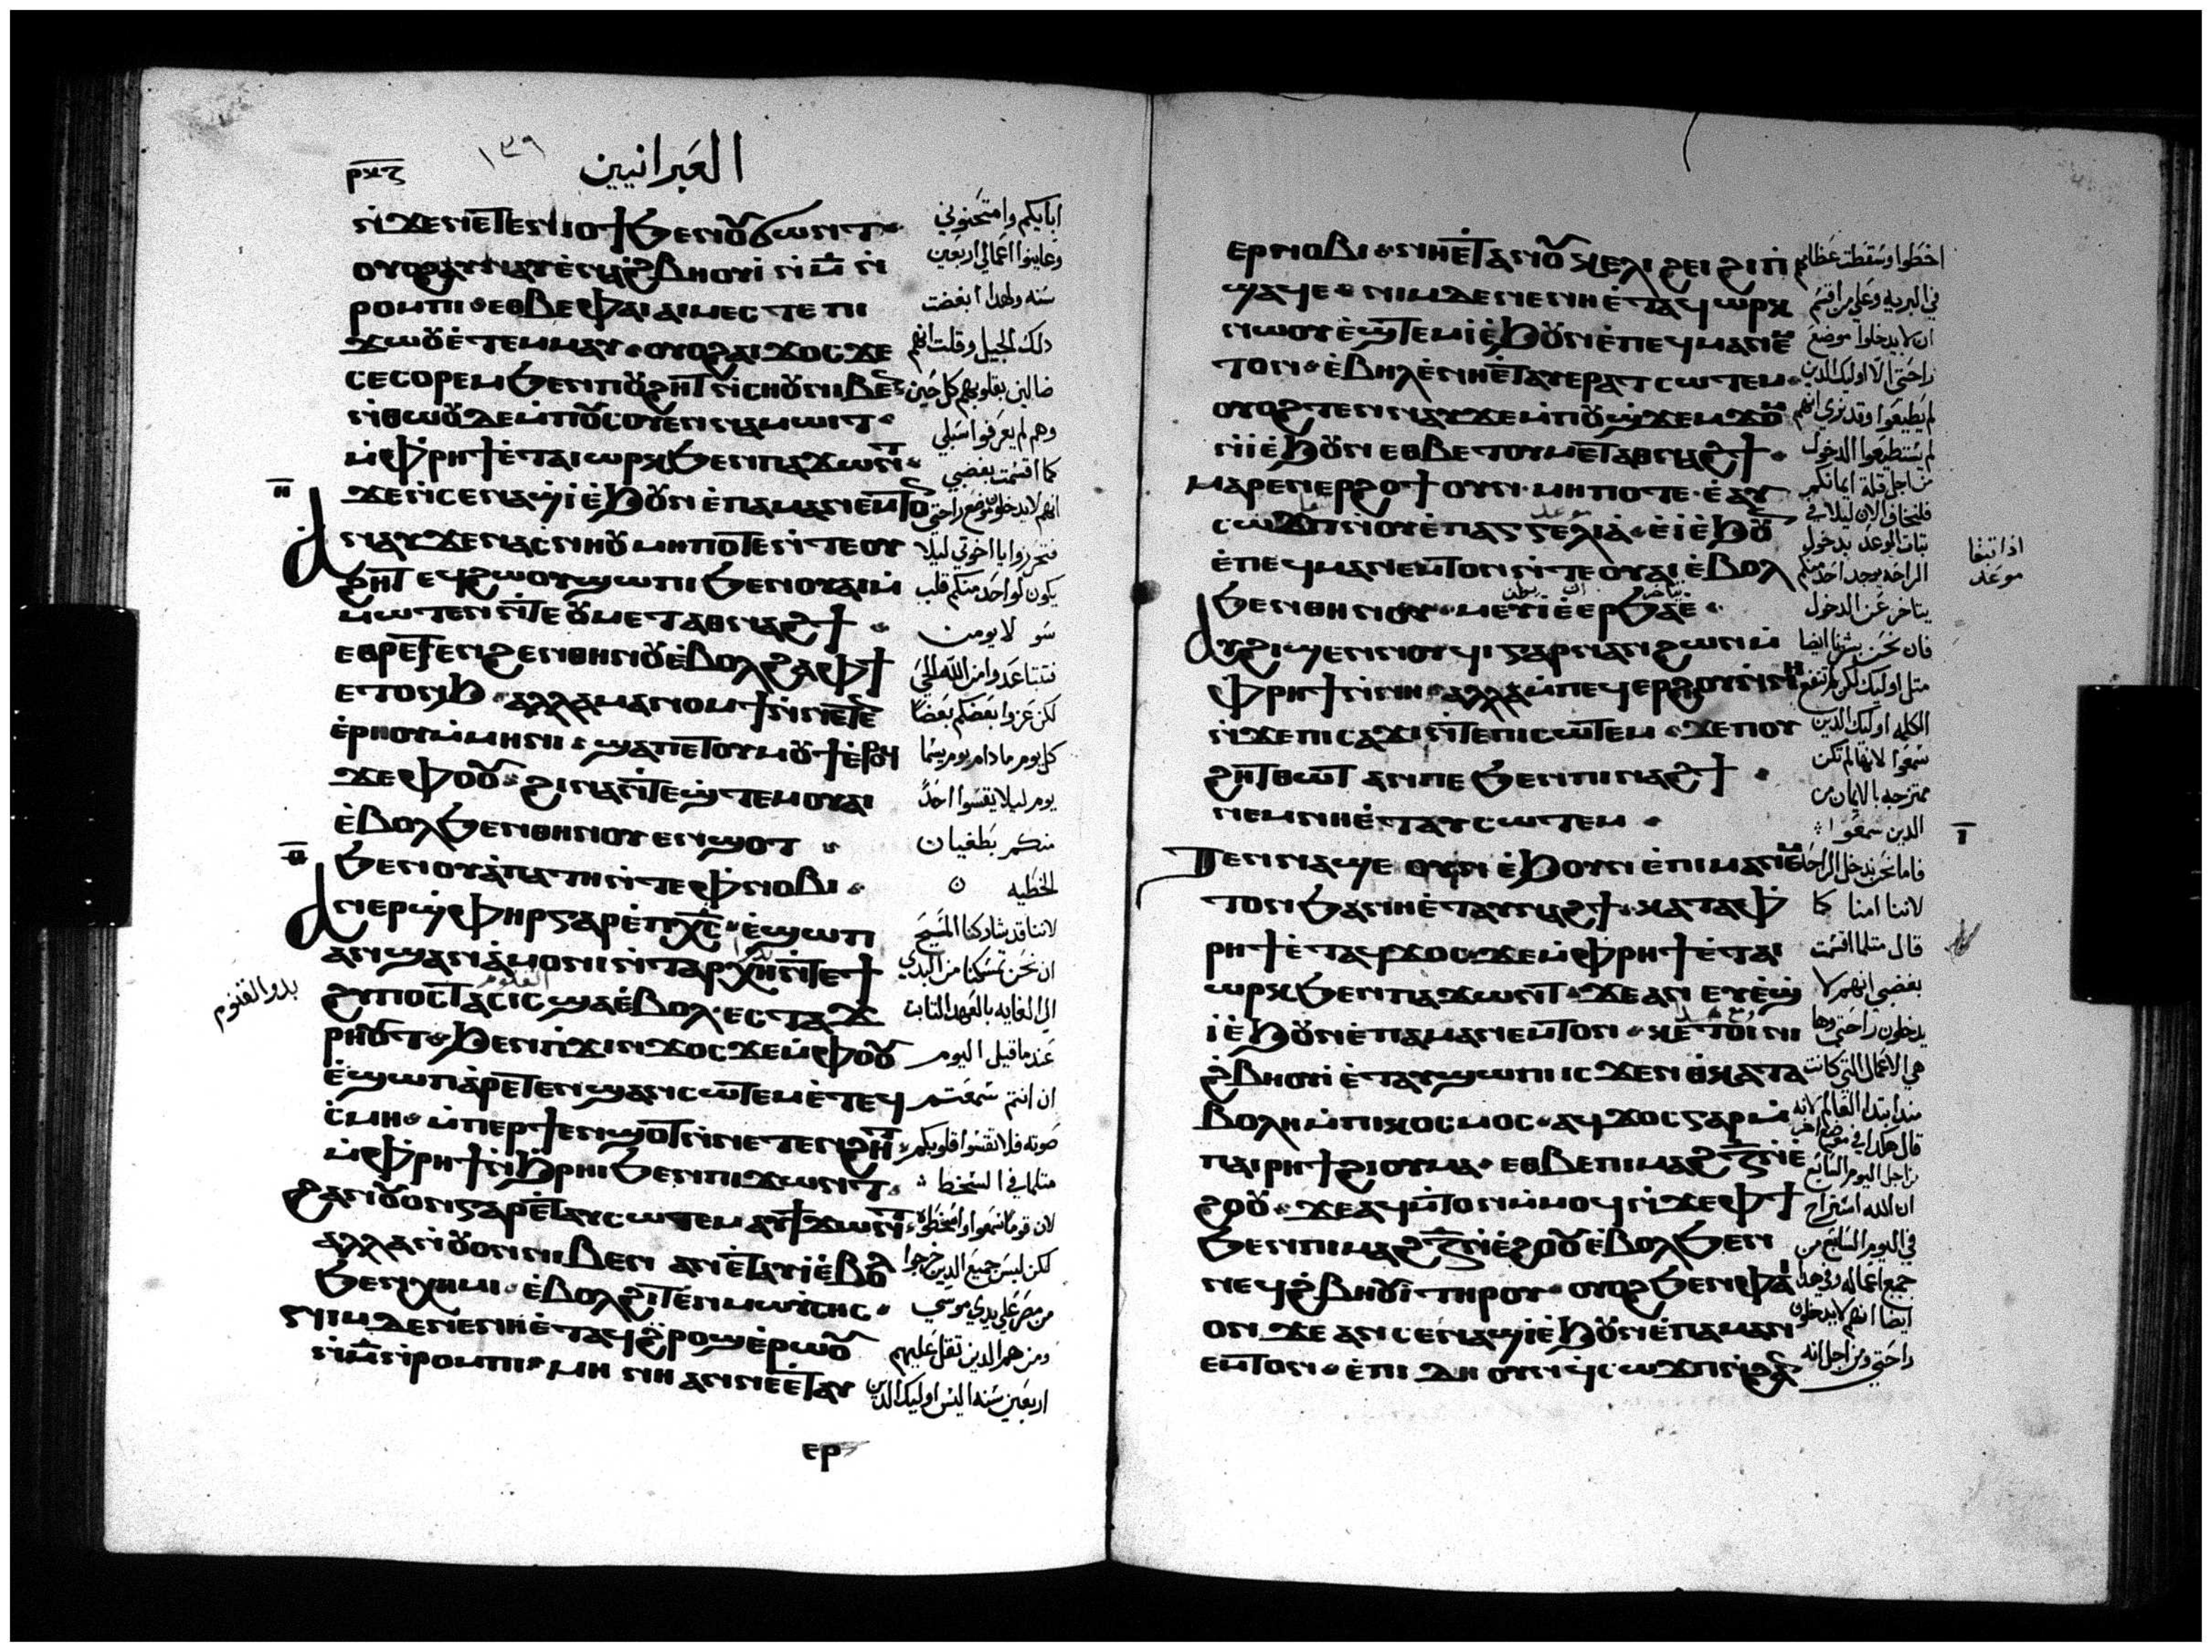 العبرانيين
ⲣⲝⲍ
١٣٩
ⲛ̀ϫⲉⲛⲉⲧⲉⲛⲓⲟϯ ϧⲉⲛⲟⲩϭⲱⲛⲧ
ⲟⲩⲟϩ ⲁⲩⲛⲁⲩ ⲉⲛⲁϩⲃⲏⲟⲩⲓ ⲛ̀ⲙ̅ ⲛ̀
ⲣⲟⲙⲡⲓ ⲉⲑⲃⲉⲫⲁⲓ ⲁⲓⲙⲉⲥⲧⲉ ⲡⲓ
ϫⲱⲟⲩ ⲉ̀ⲧⲉⲙⲙⲁⲩ ⲟⲩⲟϩ ⲁⲓϫⲟⲥ ϫⲉ
ⲥⲉⲥⲟⲣⲉⲙ ϧⲉⲛⲡⲟⲩϩⲏⲧ ⲛ̀ⲥⲏⲟⲩ ⲛⲓⲃⲉⲛ
ⲛ̀ⲑⲱⲟⲩ ⲇⲉ ⲙ̀ⲡⲟⲩⲥⲟⲩⲉⲛ ⲛⲁⲙⲱⲓⲧ
ⲙ̀ⲫⲣⲏϯ ⲉ̀ⲧⲁⲓⲱⲣⲕ ϧⲉⲛⲡⲁϫⲱⲛⲧ
ϫⲉⲛ̀ⲥⲉⲛⲁϣⲓ ⲉ̀ϧⲟⲩⲛ ⲉ̀ⲡⲁⲙⲁⲛⲉⲙⲧⲟⲛ
ⲁⲛⲁⲩ ϫⲉ ⲛⲁⲥⲛⲏⲟⲩ ⲙⲏⲡⲟⲧⲉ ⲛ̀ⲧⲉⲟⲩ
ϩⲏⲧ ⲉϥϩⲱⲟⲩ ϣⲱⲡⲓ ϧⲉⲛⲟⲩⲁⲓ ⲙ̀
ⲙⲱⲧⲉⲛ ⲛ̀ⲧⲉ ⲟⲩⲙⲉⲧⲁⲑⲛⲁϩϯ
ⲉⲑⲣⲉⲧⲉⲛϩⲉⲛⲑⲏⲛⲟⲩ ⲉ̀ⲃⲟⲗ ϩⲁⲫϯ
ⲉⲧⲟⲛϧ ⲁⲗⲗⲁ ⲙⲁⲛⲟⲙϯ ⲛ̀ⲛⲉⲧⲉⲛ
ⲉ̀ⲣⲏⲟⲩ ⲙ̀ⲙⲏⲛⲓ ϣⲁⲡⲉⲧⲟⲩⲙⲟⲩϯ ⲉ̀ⲣⲟϥ
ϫⲉ ⲫⲟⲟⲩ ϩⲓⲛⲁ ⲛ̀ⲧⲉϣ̀ⲧⲉⲙ ⲟⲩⲁⲓ
ⲉ̀ⲃⲟⲗ ϧⲉⲛⲑⲏⲛⲟⲩ ⲉⲛϣⲟⲧ
ϧⲉⲛⲟⲩⲁ̀ⲡⲁⲧⲏ ⲛ̀ⲧⲉ ⲫ̀ⲛⲟⲃⲓ
ⲁⲛⲉⲣϣ̀ⲫⲏⲣ ⲅⲁⲣ ⲉ̀ⲡⲭ̅ⲥ̅ ⲉ̀ϣⲱⲡ
ⲁⲛϣⲁⲛⲁ̀ⲙⲟⲛⲓ ⲛ̀ⲧⲁⲣⲭⲏ ⲛ̀ⲧⲉϯ
ϩⲩⲡⲟⲥⲧⲁⲥⲓⲥ ϣⲁⲉ̀ⲃⲟⲗ ⲉⲥⲧⲁϫ
ⲣⲏⲟⲩⲧ ϧⲉⲛⲡ̀ϫⲓⲛϫⲟⲥ ϫⲉ ⲙ̀ⲫⲟⲟⲩ
ⲉ̀ϣⲱⲡ ⲁ̀ⲣⲉⲧⲉⲛϣⲁⲛⲥⲱⲧⲉⲙ ⲉ̀ⲧⲉϥ
ⲥ̀ⲙⲏ ⲙ̀ⲡⲉⲣϯⲉⲛϣⲟⲧ ⲛ̀ⲛⲉⲧⲉⲛϩⲏⲧ
ⲙ̀ⲫⲣⲏϯ ⲛ̀ϧⲣⲏⲓ ϧⲉⲛⲡⲓϫⲱⲛⲧ
ϩⲁⲛⲟⲩⲟⲛ ⲅⲁⲣ ⲉ̀ⲧⲁⲩⲥⲱⲧⲉⲙ ⲁⲩϯϫⲱⲛⲧ
ⲁⲗⲗⲁ ⲛⲟⲩⲟⲛ ⲛⲓⲃⲉⲛ ⲁⲛ ⲉ̀ⲧⲁⲩⲓ̀ ⲉ̀ⲃⲟⲗ
ϧⲉⲛⲭⲏⲙⲓ ⲉ̀ⲃⲟⲗ ϩⲓⲧⲉⲛ ⲙⲱⲩ̀ⲥⲏⲥ
ⲛⲓⲙ ⲇⲉ ⲛⲉ ⲛⲏ ⲉ̀ⲧⲁϥϩ̀ⲣⲟϣ ⲉ̀ⲣⲱⲟⲩ
ⲛ̀ⲙ̅ ⲛ̀ⲣⲟⲙⲡⲓ ⲙⲏ ⲛⲏ ⲁⲛ ⲛⲉ ⲉ̀ⲧⲁⲩ
ⲉⲣ
ابايكم وامتحنوني
وعاينوا اعمالي اربعين
سنه ولهدا ابغضت
دلك الجيل وقلت انهم
ضالين بقلوبهم كل حين
وهم لم يعرفوا سبلي
كما اقسمت بغضبي
انهم لا يدخلون موضع راحتي
فتحرزوا يا اخوتي ليلا
يكون لواحد منكم قلب
سو لا يومن
فتتباعدوا من الله الحي
لكن عزوا بعضكم بعضا
كل يوم ما دام يوم يسما
يوم ليلا يقسوا احد
منكم بطغيان
الخطيه
لاننا قد شاركنا المسيح
ان نحن تمسكنا من البدي
الي الغايه بالعهد التابت
عند ما قيل اليوم
ان انتم سمعتم
صوته فلا تقسوا قلوبكم
متلما في السخط
لان قوما سمعوا واسخطوه
لكن ليس جميع الدين خرجوا
من مصر علي يدي موسي
ومن هم الدين تقل عليهم
اربعين سنه اليس اوليك الدين
بدو القنوم
ⲉⲣⲛⲟⲃⲓ ⲛⲏ ⲉ̀ⲧⲁⲛⲟⲩⲕⲉⲗⲓ ϩⲉⲓ ϩⲓ ⲡ̀
ϣⲁϥⲉ ⲛⲓⲙ ⲇⲉ ⲛⲉ ⲛⲏ ⲉ̀ⲧⲁϥⲱⲣⲕ
ⲛⲱⲟⲩ ⲉ̀ϣ̀ⲧⲉⲙⲓ̀ ⲉ̀ϧⲟⲩⲛ ⲉ̀ⲡⲉϥⲙⲁⲛⲉⲙ
ⲧⲟⲛ ⲉ̀ⲃⲏⲗ ⲉ̀ⲛⲏ ⲉ̀ⲧⲁⲩⲉⲣⲁⲧⲥⲱⲧⲉⲙ
ⲟⲩⲟϩ ⲧⲉⲛⲛⲁⲩ ϫⲉ ⲙ̀ⲡⲟⲩϣ̀ϫⲉⲙϫⲟⲙ
ⲛ̀ⲓ̀ ⲉ̀ϧⲟⲩⲛ ⲉⲑⲃⲉ ⲧⲟⲩⲙⲉⲧⲁⲑⲛⲁϩϯ
ⲙⲁⲣⲉⲛⲉⲣϩⲟϯ ⲟⲩⲛ ⲙⲏⲡⲟⲧⲉ ⲉ̀ⲁⲩ
ⲥⲱϫⲡ ⲛ̀ⲟⲩⲉ̀ⲡⲁⲅⲅⲉⲗⲓⲁ̀ ⲉ̀ⲓ̀ ⲉ̀ϧⲟⲩⲛ
ⲉ̀ⲡⲉϥⲙⲁⲛⲉⲙⲧⲟⲛ ⲛ̀ⲧⲉ ⲟⲩⲁⲓ ⲉ̀ⲃⲟⲗ
ϧⲉⲛⲑⲏⲛⲟⲩ ⲙⲉⲩⲓ̀ ⲉ̀ⲉⲣϧⲁⲉ̀
ⲁⲩϩⲓϣⲉⲛⲛⲟⲩϥⲓ ⲅⲁⲣ ⲛⲁⲛ ϩⲱⲛ ⲙ̀
ⲫⲣⲏϯ ⲛ̀ⲛⲏ ⲁⲗⲗⲁ ⲙ̀ⲡⲉϥⲉⲣϩⲟⲩ ⲛ̀ⲛⲏ
ⲛ̀ϫⲉ ⲡⲓⲥⲁϫⲓ ⲛ̀ⲧⲉ ⲡⲓⲥⲱⲧⲉⲙ ϫⲉ ⲡⲟⲩ
ϩⲏⲧ ⲑⲱⲧ ⲁⲛ ⲡⲉ ϧⲉⲛⲡⲓⲛⲁϩϯ
ⲛⲉⲙ ⲛⲏ ⲉ̀ⲧⲁⲩⲥⲱⲧⲉⲙ
ⲧⲉⲛⲛⲁϣⲉ ⲟⲩⲛ ⲉ̀ϧⲟⲩⲛ ⲉ̀ⲡⲓⲙⲁⲛⲉⲙ
ⲧⲟⲛ ϧⲁ ⲛⲏ ⲉ̀ⲧⲁⲩⲛⲁϩϯ ⲕⲁⲧⲁ ⲫ̀
ⲣⲏϯ ⲉ̀ⲧⲁϥϫⲟⲥ ϫⲉ ⲙ̀ⲫⲣⲏϯ ⲉ̀ⲧⲁⲓ
ⲱⲣⲕ ϧⲉⲛⲡⲁϫⲱⲛⲧ ϫⲉ ⲁⲛ ⲉⲩⲉ̀ϣ̀
ⲓ̀ ⲉ̀ϧⲟⲩⲛ ⲉ̀ⲡⲁⲙⲁⲛⲉⲙⲧⲟⲛ ⲕⲉⲧⲟⲓ ⲛⲓ
ϩ̀ⲃⲏⲟⲩⲓ ⲉ̀ⲧⲁⲩϣⲱⲡⲓ ⲓⲥϫⲉⲛ ⲑ̀ⲕⲁⲧⲁ
ⲃⲟⲗⲏ ⲙ̀ⲡⲓⲕⲟⲥⲙⲟⲥ ⲁϥϫⲟⲥ ⲅⲁⲣ ⲙ̀
ⲡⲁⲓⲣⲏϯ ϩⲓⲟⲩⲙⲁ ⲉⲑⲃⲉ ⲡⲓⲙⲁϩⲍ̅ ⲛ̀ⲉ̀
ϩⲟⲟⲩ ϫⲉ ⲁϥⲙ̀ⲧⲟⲛ ⲙ̀ⲙⲟϥ ⲛ̀ϫⲉ ⲫϯ
ϧⲉⲛⲡⲓⲙⲁϩⲍ̅ ⲛ̀ⲉ̀ϩⲟⲟⲩ ⲉ̀ⲃⲟⲗ ϧⲉⲛ
ⲛⲉϥϩ̀ⲃⲏⲟⲩⲓ̀ ⲧⲏⲣⲟⲩ ⲟⲩⲟϩ ϧⲉⲛⲫⲁⲓ
ⲟⲛ ϫⲉ ⲁⲛ ⲥⲉⲛⲁϣⲓ̀ ⲉ̀ϧⲟⲩⲛ ⲉ̀ⲡⲁⲙⲁⲛ
ⲉⲙⲧⲟⲛ ⲉ̀ⲡⲓⲇⲏ ⲟⲩⲛ ϥ̀ⲥⲱϫⲡ ⲛ̀ϩⲁⲛ
اخطوا وسقطت عظامهم
في البريه وعلي من اقسم
ان لا يدخلوا موضع
راحتي الا اوليك الدين
لم يطيعوا وقد نري انهم
لم يستطيعوا الدخول
من اجل قلة ايمانكم
فلنخاف الان ليلا في
تبات الوعد بدخول
الراحه يوجد احد منكم
يتاخر عن الدخول
فان نحن بشرنا ايضا
متل اوليك لكن لم تنفع
الكلمه اوليك الدين
سمعوا لانها لم تكن
ممتزجه بالايمان من
الدين سمعوا
فاما نحن ندخل الراحه
لاننا امنا كما
قال متلما اقسمت
بغضبي انهم لا
يدخلون راحتي وها
هي الاعمال التي كانت
مند ابتدا العالم لانه
قال هكدا في موضع اخر
من اجل اليوم السابع
ان الله استراح
في اليوم السابع من
جميع اعماله وفي هدا
ايضا انهم لا يدخلون
راحتي ومن اجل انه
اذا تبقا
موعد